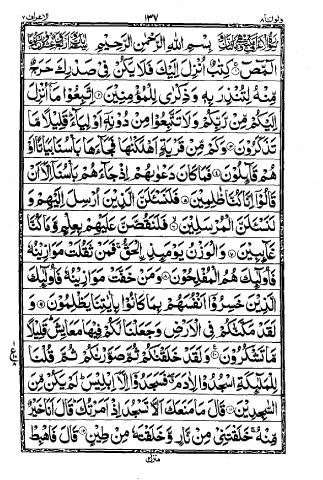 ولواننا ٨ ١٣٧ الاعراف ٧
بسم الله الرحمن الرحيم
الٓمّٓصٓ كِتٰبٌ اُنْزِلَ اِلَيْكَ فَلَا يَكُنْ فِيْ صَدْرِكَ حَرَجٌ
مِّنْهُ لِتُنْذِرَ بِهٖ وَذِكْرٰى لِلْمُؤْمِنِيْنَ اِتَّبِعُوْا مَآ اُنْزِلَ
اِلَيْكُمْ مِّنْ رَّبِّكُمْ وَلَا تَتَّبِعُوْا مِنْ دُوْنِهٖٓ اَوْلِيَآءَ قَلِيْلًا مَّا
تَذَكَّرُوْنَ وَكَمْ مِّنْ قَرْيَةٍ اَهْلَكْنٰهَا فَجَآءَهَا بَاْسُنَا بَيَاتًا اَوْ
هُمْ قَآئِلُوْنَ فَمَا كَانَ دَعْوٰىهُمْ اِذْ جَآءَهُمْ بَاْسُنَآ اِلَّآ اَنْ
قَالُوْٓا اِنَّا كُنَّا ظٰلِمِيْنَ فَلَنَسْـَٔلَنَّ الَّذِيْنَ اُرْسِلَ اِلَيْهِمْ وَ
لَنَسْـَٔلَنَّ الْمُرْسَلِيْنَ فَلَنَقُصَّنَّ عَلَيْهِمْ بِعِلْمٍ وَّمَا كُنَّا
غَآئِبِيْنَ وَالْوَزْنُ يَوْمَئِذِ ِۨالْحَقُّ فَمَنْ ثَقُلَتْ مَوَازِيْنُهٗ
فَاُولٰٓئِكَ هُمُ الْمُفْلِحُوْنَ وَمَنْ خَفَّتْ مَوَازِيْنُهٗ فَاُولٰٓئِكَ
الَّذِيْنَ خَسِرُوْٓا اَنْفُسَهُمْ بِمَا كَانُوْا بِاٰيٰتِنَا يَظْلِمُوْنَ وَ
لَقَدْ مَكَّنّٰكُمْ فِي الْاَرْضِ وَجَعَلْنَا لَكُمْ فِيْهَا مَعَايِشَ قَلِيْلًا
مَّا تَشْكُرُوْنَ وَلَقَدْ خَلَقْنٰكُمْ ثُمَّ صَوَّرْنٰكُمْ ثُمَّ قُلْنَا
لِلْمَلٰٓئِكَةِ اسْجُدُوْا لِاٰدَمَ فَسَجَدُوْٓا اِلَّآ اِبْلِيْسَ لَمْ يَكُنْ مِّنَ
السّٰجِدِيْنَ قَالَ مَا مَنَعَكَ اَلَّا تَسْجُدَ اِذْ اَمَرْتُكَ قَالَ اَنَا خَيْرٌ
مِّنْهُ خَلَقْتَنِيْ مِنْ نَّارٍ وَّخَلَقْتَهٗ مِنْ طِيْنٍ قَالَ فَاهْبِطْ